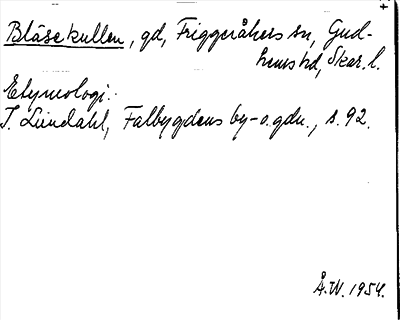 Blåsekullen, gd, Friggeråkers sn, Gud-
hems hd, Skar. l.
Etymologi:
I. Lundahl, Falbygdens by- o. gdn., s. 92.
Å.W. 1954.